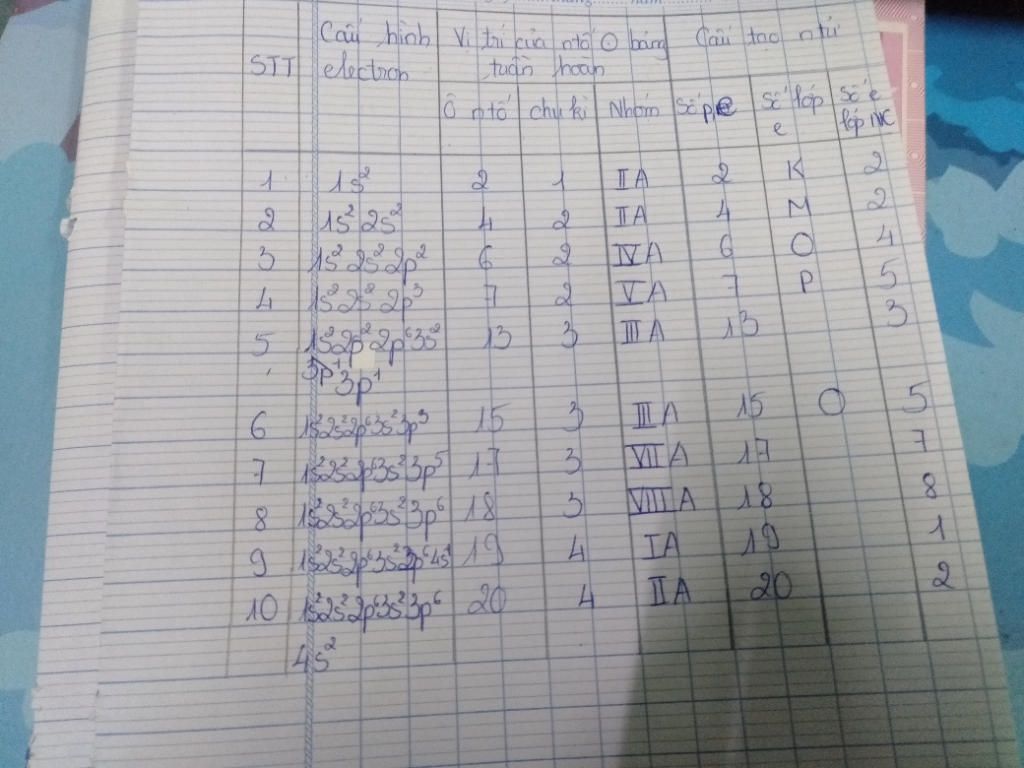 STT Cấu hình electron Vị trí của ntố O bảng tuần hoàn Cấu tạo ntử
Ô ntố chu kì Nhóm Số p,e Số lớp e Số e lớp NC
1 1s² 2 1 IIA 2 K 2
2 1s² 2s² 4 2 IIA 4 M 2
3 1s² 2s² 2p² 6 2 IVA 6 O 4
4 1s² 2s² 2p³ 7 2 VA 7 P 5
5 1s² 2p² 2p⁶ 3s² 13 3 IIIA 13 3
3p¹ 3p¹
6 1s² 2s² 2p⁶ 3s² 3p³ 15 3 IIIA 15 O 5
7 1s² 2s² 2p⁶ 3s² 3p⁵ 17 3 VIIA 17 7
8 1s² 2s² 2p⁶ 3s² 3p⁶ 18 3 VIIIA 18 8
9 1s² 2s² 2p⁶ 3s² 2p⁶ 4s¹ 19 4 IA 19 1
10 1s² 2s² 2p⁶ 3s² 3p⁶ 20 4 IIA 20 2
4s²